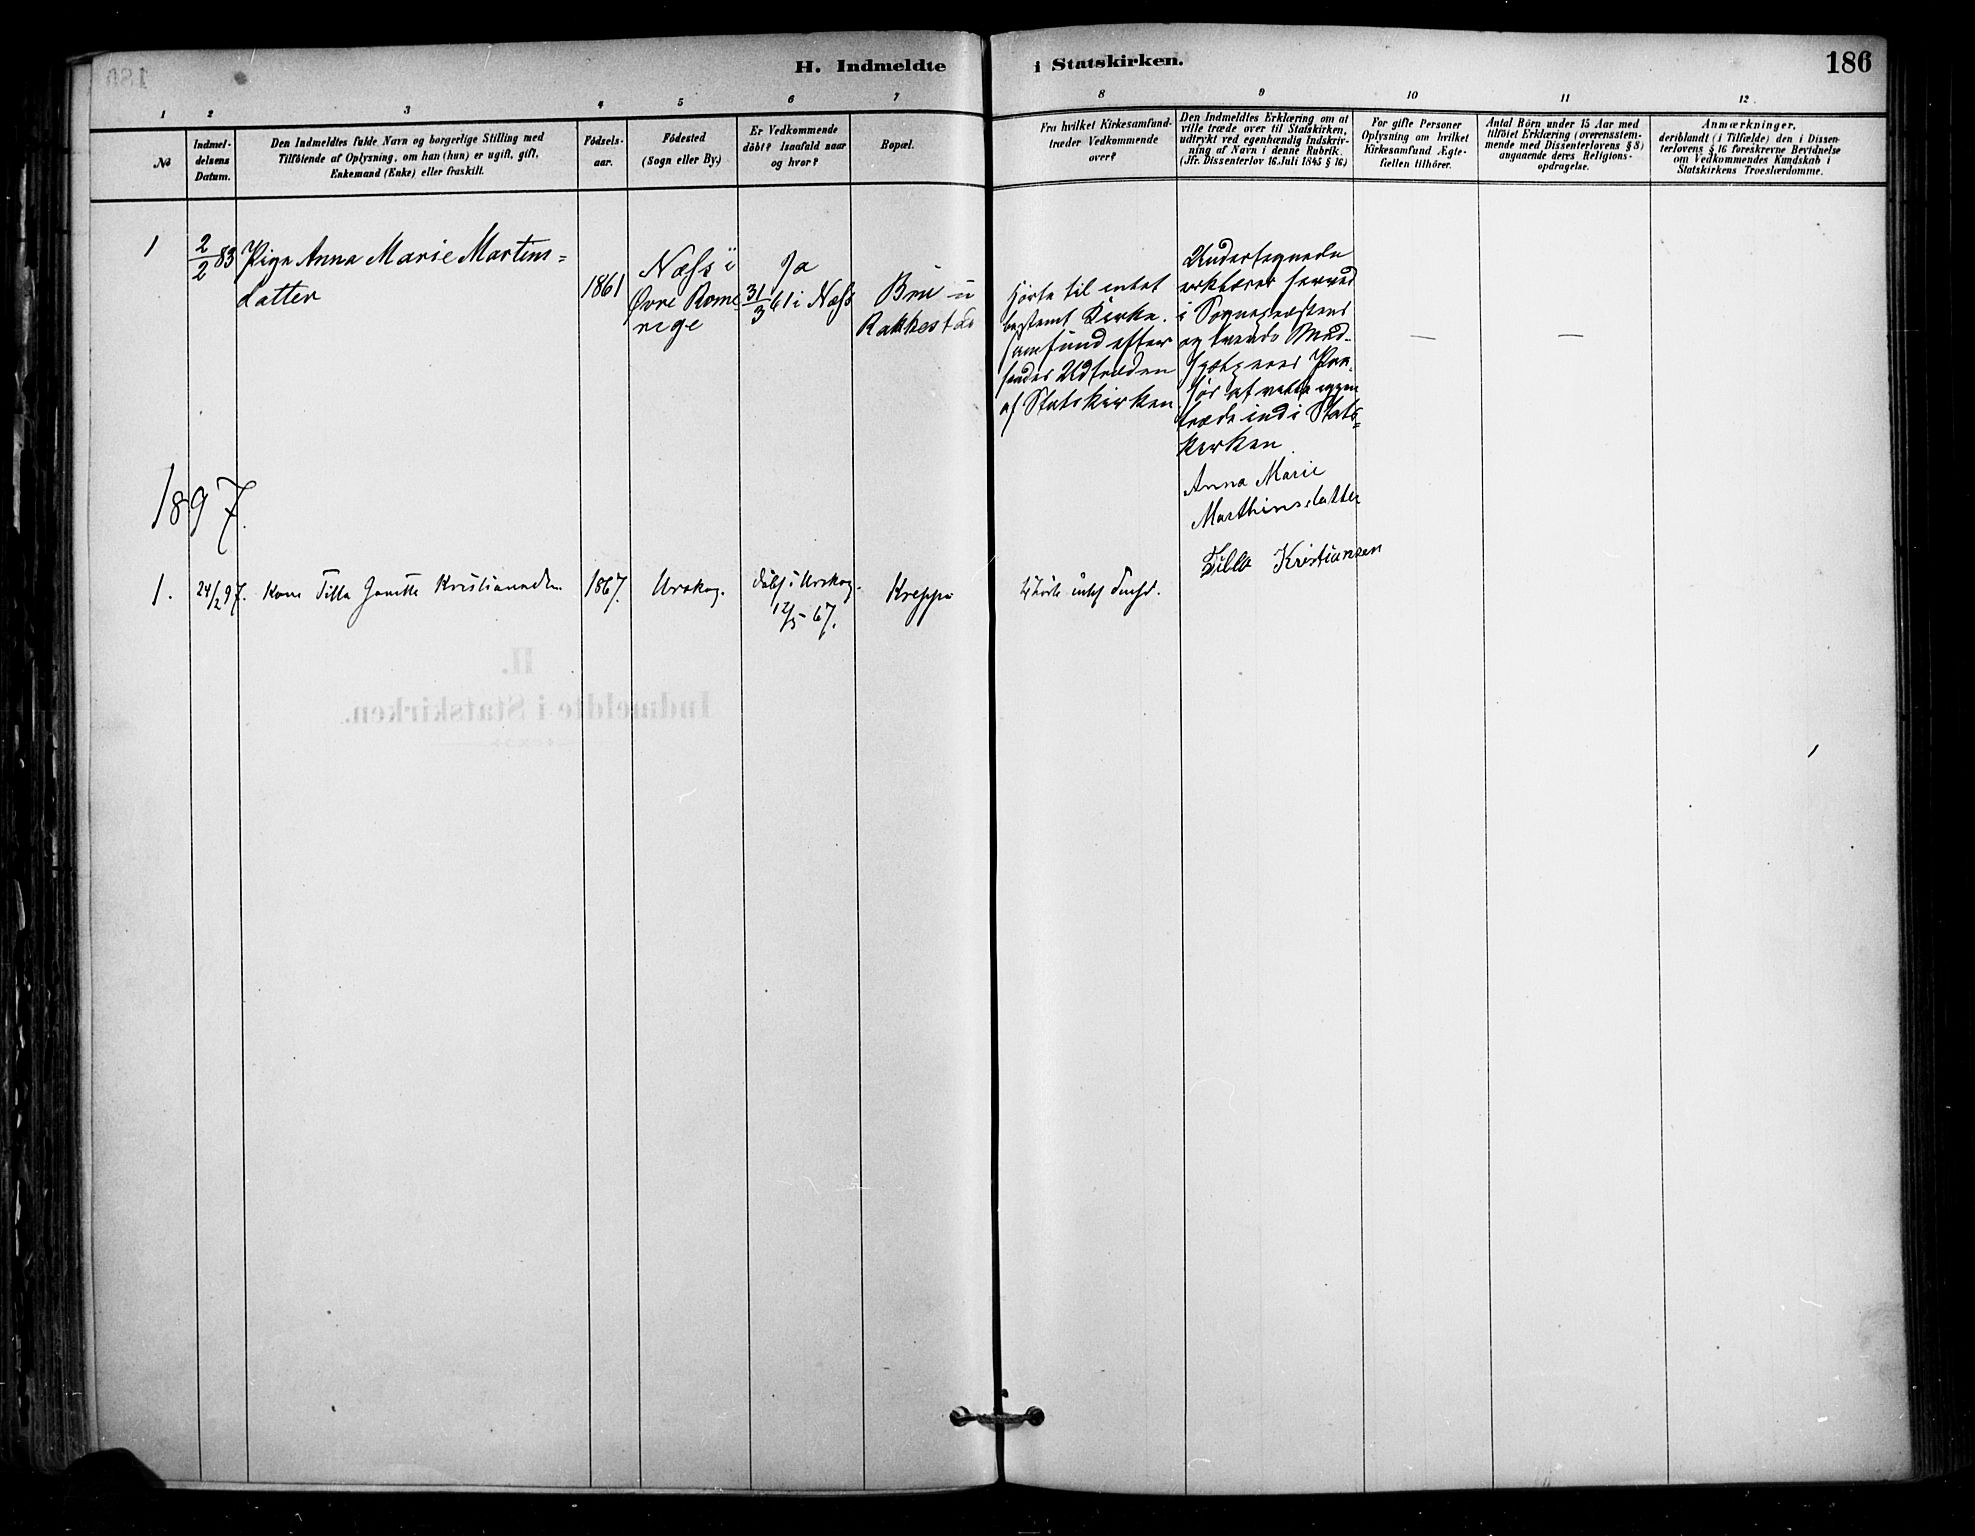 H. Indmeldte i Statskirken.
186
1
2
3
4
5
6
7
8
9
10
11
12
No
Indmel-
delsens
Datum.
Den Indmeldtes fulde Navn og borgerlige Stilling med
Tilföiende af Oplysning, om han (hun) er ugift, gift,
Enkemand (Enke) eller fraskilt.
Födsels-
aar.
Födested
(Sogn eller By.)
Er Vedkommende
döbt? Isaafald naar
og hvor?
Bopæl.
Fra hvilket Kirkesamfund
træder Vedkommende
over?
Den Indmeldtes Erklæring om at
ville træde over til Statskirken,
udtrykt ved egenhændig Indskriv-
ning af Navn i denne Rubrik.
(Jfr. Dissenterlov 16. Juli 1845 § 16)
For gifte Personer
Oplysning om hvilket
Kirkesamfund Ægte-
fællen tilhörer.
Antal Börn under 15 Aar med
tilföiet Erklæring (overensstem-
mende med Dissenterlovens § 8)
angaaende deres Religions-
opdragelse.
Anmærkninger,
deriblandt (i Tilfælde) den i Dissen-
terlovens § 16 foreskrevne Bevidnelse
om Vedkommendes Kundskab i
Statskirkens Troeslærdomme.
1
2/2 83
Pige Anna Marie Martins=
datter
1861
Næss i
Øvre Rome
rige
Ja
31/3 61 i Næss
Bru i
Rakkestad
hörte til intet
bestemt Kirke-
samfund efter
hendes Udtræden
af Statskirken
Undertegnede
erklærer herved
i Sognepræstens
og tvende Med-
hjælperes
at ville igjen
træde ind i Stats=
kirken
Anna Marie
Marthinsdatter
—
—
1897.
1.
24/2 97.
Kone Tilla
1867.
Urskog.
döbt i Urskog
12/5 67.
intet
Tilla Kristiansen
II.
Indmeldte i Statskirken.